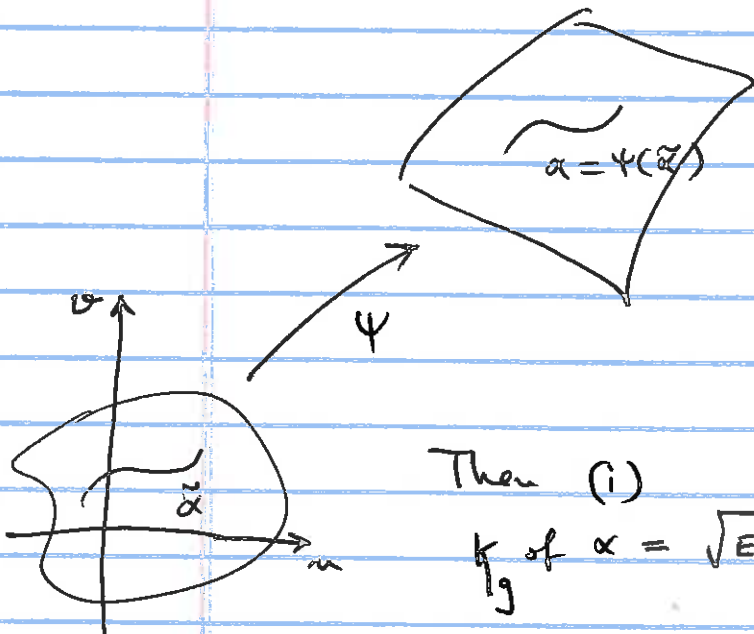 α = Ψ(α̃)
v
Ψ
α̃
u
Then (i)
k_g of α = √E